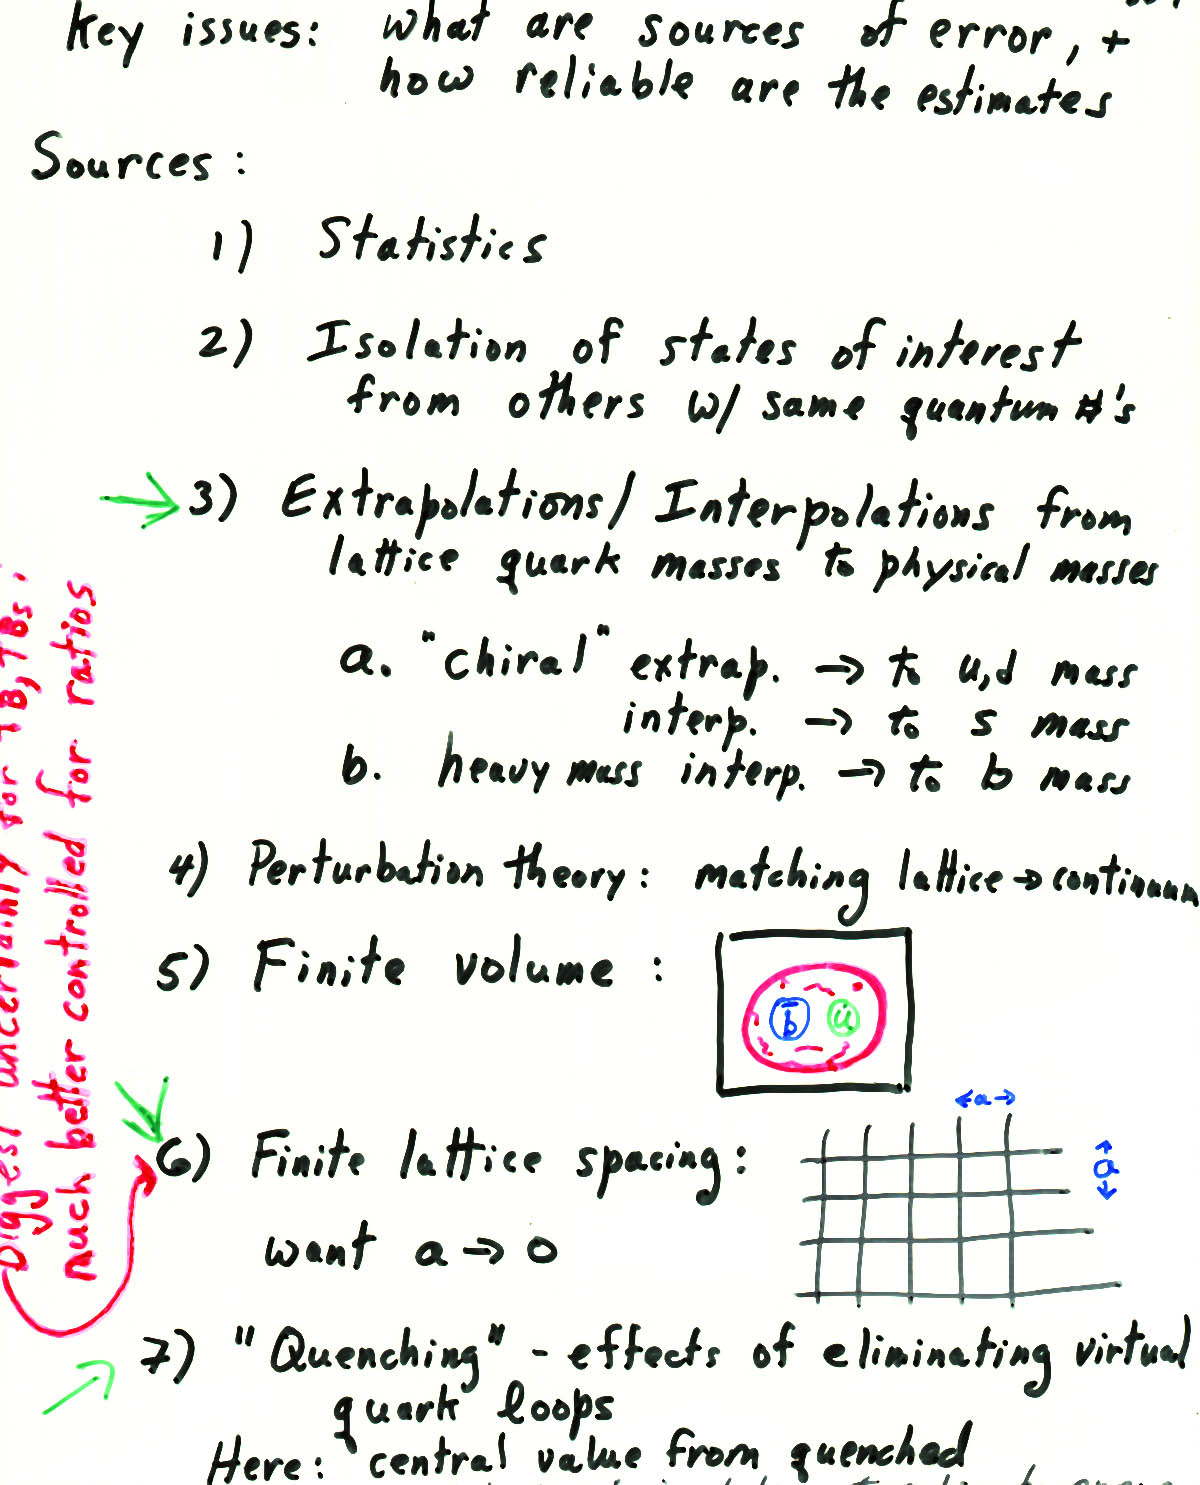 Key issues: what are sources of error, +
how reliable are the estimates
Sources:
1) Statistics
2) Isolation of states of interest
from others w/ same quantum #'s
3) Extrapolations/Interpolations from
lattice quark masses to physical masses
a. "chiral" extrap. → to u,d mass
interp. → to s mass
b. heavy mass interp. → to b mass
4) Perturbation theory: matching lattice → continuum
5) Finite volume:
b̄ u
6) Finite lattice spacing:
←a→
a
want a → 0
7) "Quenching" - effects of eliminating virtual
quark loops
Here: central value from quenched
Biggest uncertainly for fB, fBs,
much better controlled for ratios